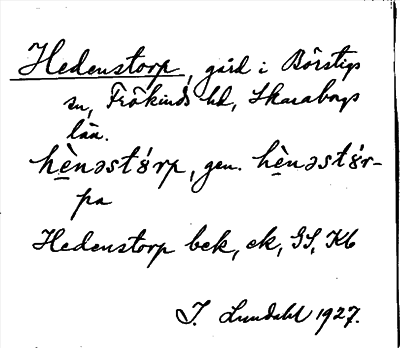 Hedenstorp, gård i Börstigs
sn, Frökinds hd, Skaraborgs
län.
hènəstórp, gen. hènəstór-
pa
Hedenstorp bek, ek, GS, Kb
I. Lundahl 1927.